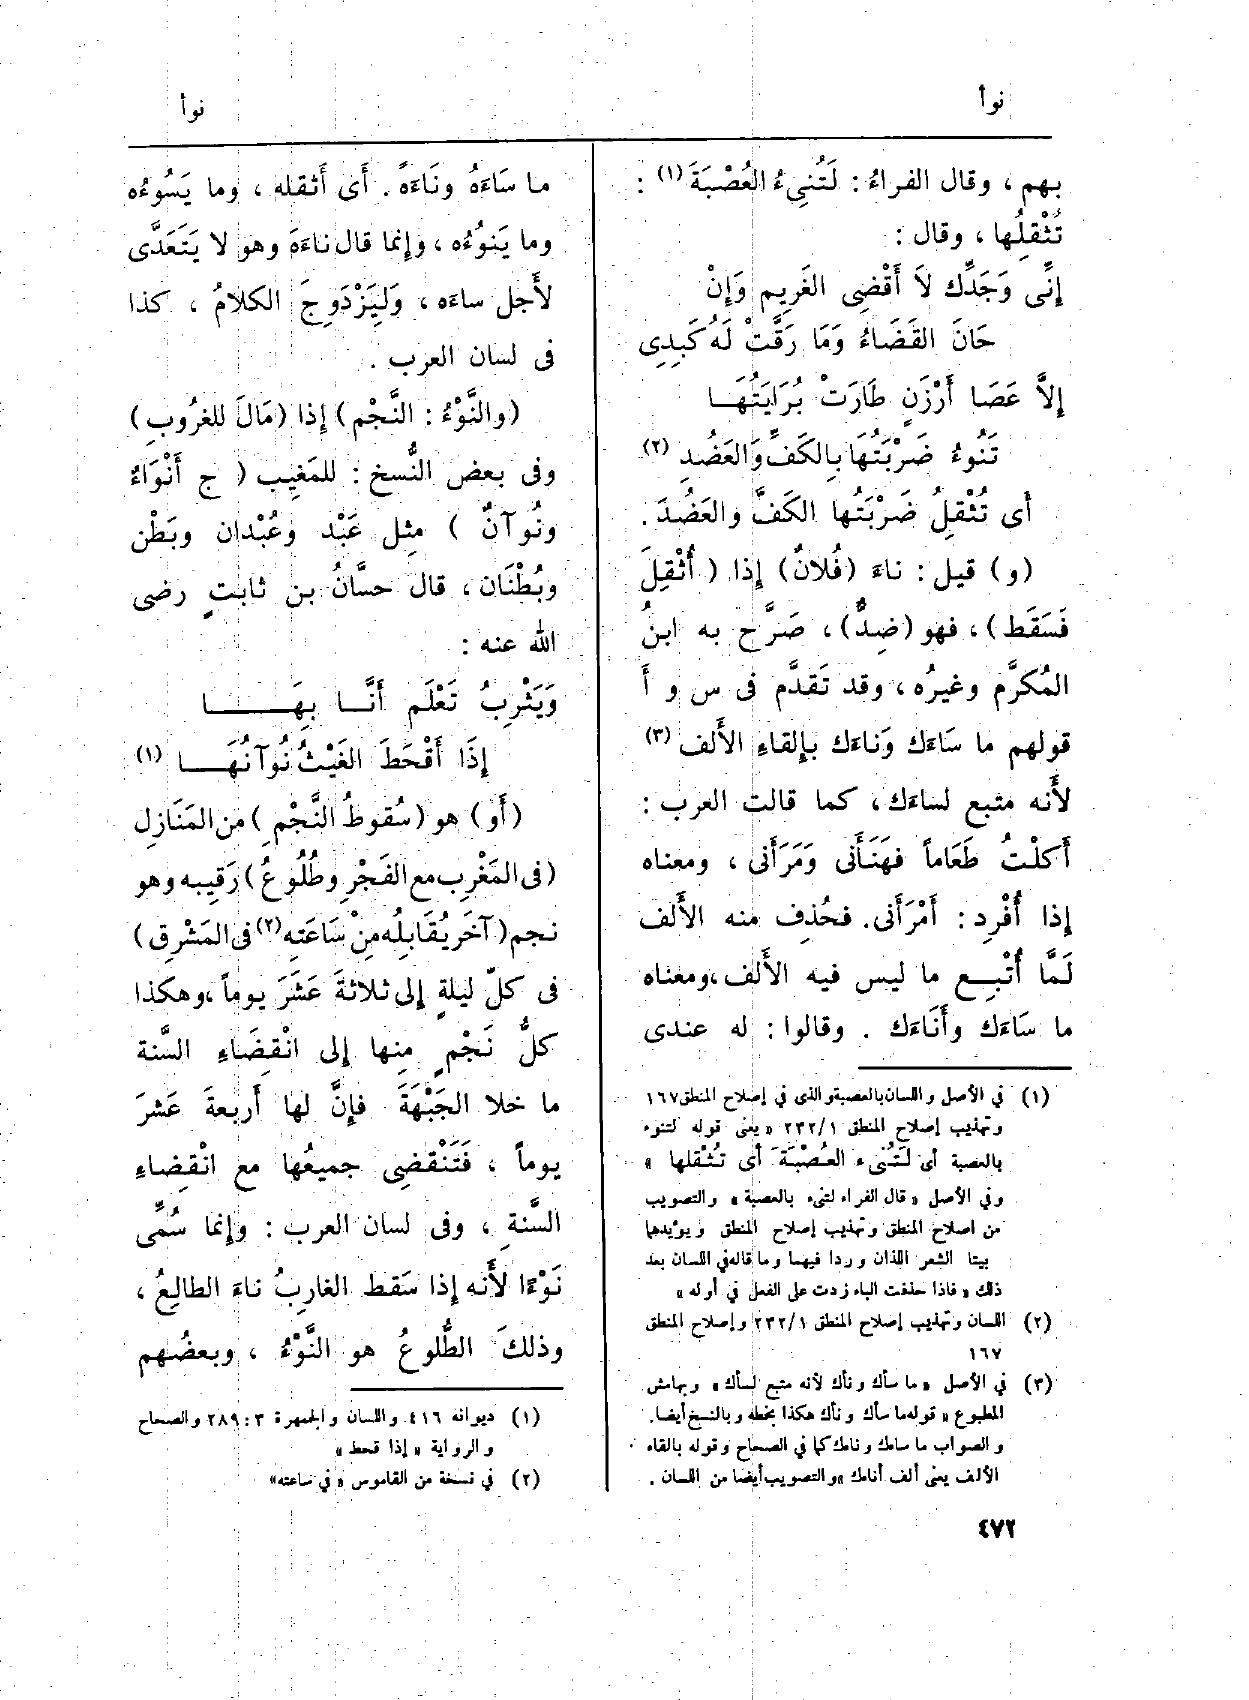 نوأ
نوأ
بهم ، وقال الفراءُ : لَتُنِىءُ العُصْبَةَ (١) :
تُثْقِلُها ، وقال :
إِنِّى وَجَدِّك لاَ أَقْضِى الغَرِيم وَإِنْ
حَانَ القَضَاءُ وَمَا رَقَّتْ لَهُ كَبِدِى
إِلاَّ عَصَا أَرْزَنٍ طَارَتْ بُرَايَتُهَــا
تَنُوءُ ضَرْبَتُهَا بِالكَفِّ وَالعَضُدِ (٢)
أى تُثْقِلُ ضَرْبَتُها الكَفَّ والعَضُدَ .
(و) قيل : ناءَ (فُلانٌ) إذا ( أُثْقِلَ
فَسَقَط) ، فهو (ضِدٌّ) ، صَرَّح به ابنُ
المُكرَّم وغيرُه ، وقد تَقدَّم فى س و أ
قولهم ما سَاءَك وَناءَك بإلقاءِ الأَلف (٣)
لأَنه متبع لساءَك ، كما قالت العرب :
أَكلْتُ طَعَاماً فهَنَأَنى وَمَرَأَنى ، ومعناه
إذا أُفْرِد : أَمْرَأَنى. فحُذِف منه الأَلف
لَمَّا أُتْبِـع ما ليس فيه الأَلف ،ومعناه
ما سَاءَك وأَنَاءَك . وقالوا : له عندى
(١) في الأصل واللسان بالعصبة والذى في إصلاح المنطق ١٦٧
وتهذيب إصلاح المنطق ٢٣٢/١ « يعنى قوله لتنوء
بالعصبة أى لَتُنىء العُصْبَةَ أى تُثْقلها »
وفي الأصل « قال الفراء لتنىء بالعصبة » والتصويب
من اصلاح المنطق وتهذيب إصلاح المنطق ويؤيدها
بيتا الشعر اللذان وردا فيهما وما قاله في اللسان بعد
ذلك « فاذا حذفت الباء زدت على الفعل في أوله »
(٢) اللسان وتهذيب إصلاح المنطق ٢٣٢/١ وإصلاح المنطق
١٦٧
(٣) في الأصل « ما سأك ونأك لأنه متبع لسأك » وبهامش
المطبوع « قوله ما سأك ونأك هكذا بخطه وبالنسخ أيضا.
والصواب ما ساءك وناءك كما في الصحاح وقوله بالقاء
الألف يعنى ألف أناءك »والتصويب أيضا من اللسان .
ما سَاءَهُ ونَاءَهُ . أَى أَثقله ، وما يَسُوءُه
وما يَنوُءُه ، وإنما قال ناءَهَ وهو لا يَتَعَدَّى
لأَجل ساءَه ، وَليَزْدَوِجَ الكلامُ ، كذا
فى لسان العرب .
(والنَّوْءُ : النَّجْم) إذا (مَالَ للغرُوبِ)
وفى بعض النُّسخ : للمَغِيب ( ج أَنْوَاءٌ
ونُوآنٌ ) مِثل عَبْد وعُبْدان وبَطْن
وبُطْنَان ، قال حسَّانُ بن ثابتٍ رضى
الله عنه :
وَيَثْرِبُ تَعْلَم أَنَّـا بِهَــــا
إِذَا أَقْحَطَ الغَيْثُ نُوآنُهَــا (١)
(أَو) هو (سُقوطُ النَّجْمِ) من المَنَازِل
(فى المَغْرِب مع الفَجْرِ وطُلُوعُ) رَقِيبه وهو
نجم (آخَر يُقَابِلُه مِنْ سَاعَتِه (٢) فى المَشْرِق)
فى كلّ ليلةٍ إلى ثلاثةَ عَشَرَ يوماً ،وهكذا
كلُّ نَجْمٍ منها إلى انْقِضَاءِ السَّنة
ما خلا الجَبْهَةَ فإنَّ لها أَربعةَ عَشَرَ
يوماً ، فَتَنْقَضِى جميعُها مع انْقِضاءِ
السَّنةِ ، وفى لسان العرب : وإنما سُمِّى
نَوْءًا لأَنه إذا سَقط الغارِبُ ناءَ الطالِعُ ،
وذلكَ الطُّلوعُ هو النَّوْءُ ، وبعضُهم
(١) ديوانه ٤١٦ واللسان والجمهرة ٢٨٩:٣ والصحاح
والرواية « إذا قحط »
(٢) في نسخة من القاموس «في ساعته»
٤٧٢